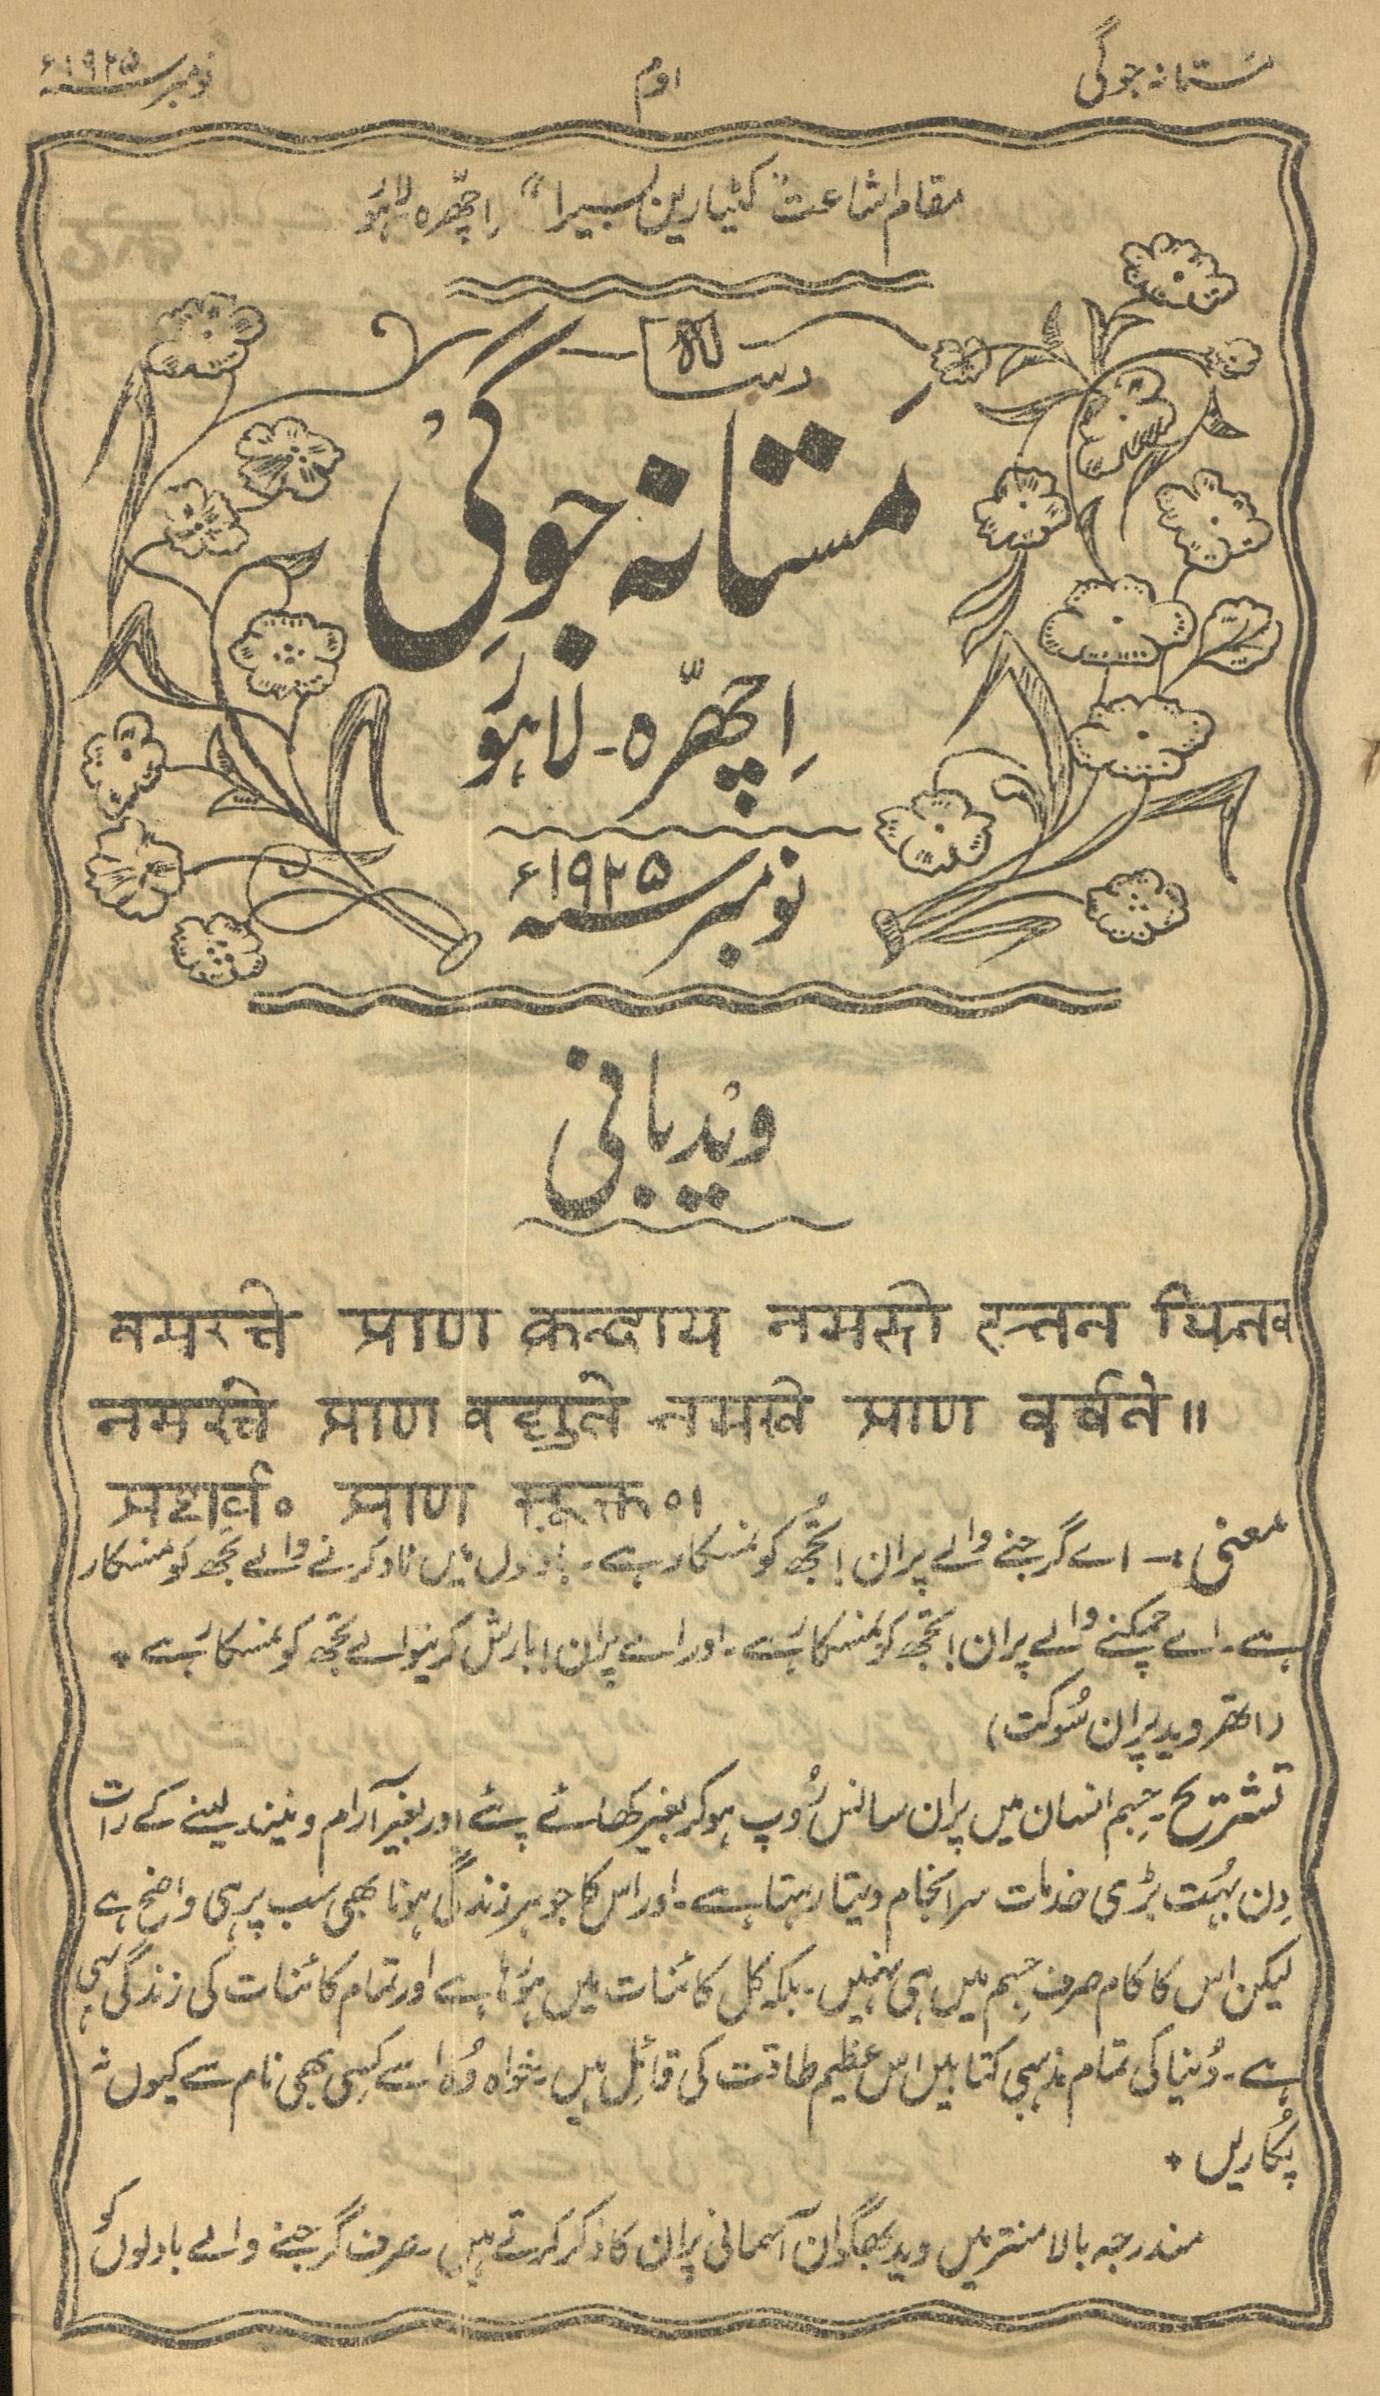 مستانہ جوگی
اوم
نومبر سنہ ۱۹۲۵ء
مقام اشاعت "کٹیا رین بسیرا" اچھرہ لاہور
رسالہ
مستانہ جوگی
اِچھرّہ - لاہور
نومبر سنہ ۱۹۲۵ء
وید بانی
नमस्ते प्राण क्रन्दाय नमस्ते स्तन यित्नव
नमस्ते प्राण वद्युते नमस्ते प्राण वर्षते॥
अथर्व० प्राण सूक्त०।
معنی:- اے گرجنے والے پران! تجھ کو نمسکار ہے۔ بادلوں میں ناد کرنے والے تجھ کو نمسکار
ہے۔ اے چمکنے والے پران! تجھ کو نمسکار ہے۔ اور اے پران! بارش کرنیوالے تجھ کو نمسکار ہے ٭
(اتھر وید پران سُوکت)
تشریح۔ جسم انسان میں پران سانس رُوپ ہو کر بغیر کھائے پئے اور بغیر آرام و نیند لینے کے رات
دِن بہُت بڑی خدمات سرانجام دیتا رہتا ہے۔ اور اس کا جوہر زندگی ہونا بھی سب پر ہی واضح ہے
لیکن اس کا کام صرف جِسم میں ہی نہیں۔ بلکہ کل کائنات میں ہو رہا ہے اور تمام کائنات کی زندگی یہی
ہے۔ دُنیا کی تمام مذہبی کتابیں اس عظیم طاقت کی قائِل ہیں۔ خواہ وُہ اسے کِسی بھی نام سے کیوں نہ
پُکاریں ٭
مندرجہ بالا منتر میں وید بھگوان آسمانی پران کا ذکر کرتے ہیں۔ صرف گرجنے والے بادلوں کو